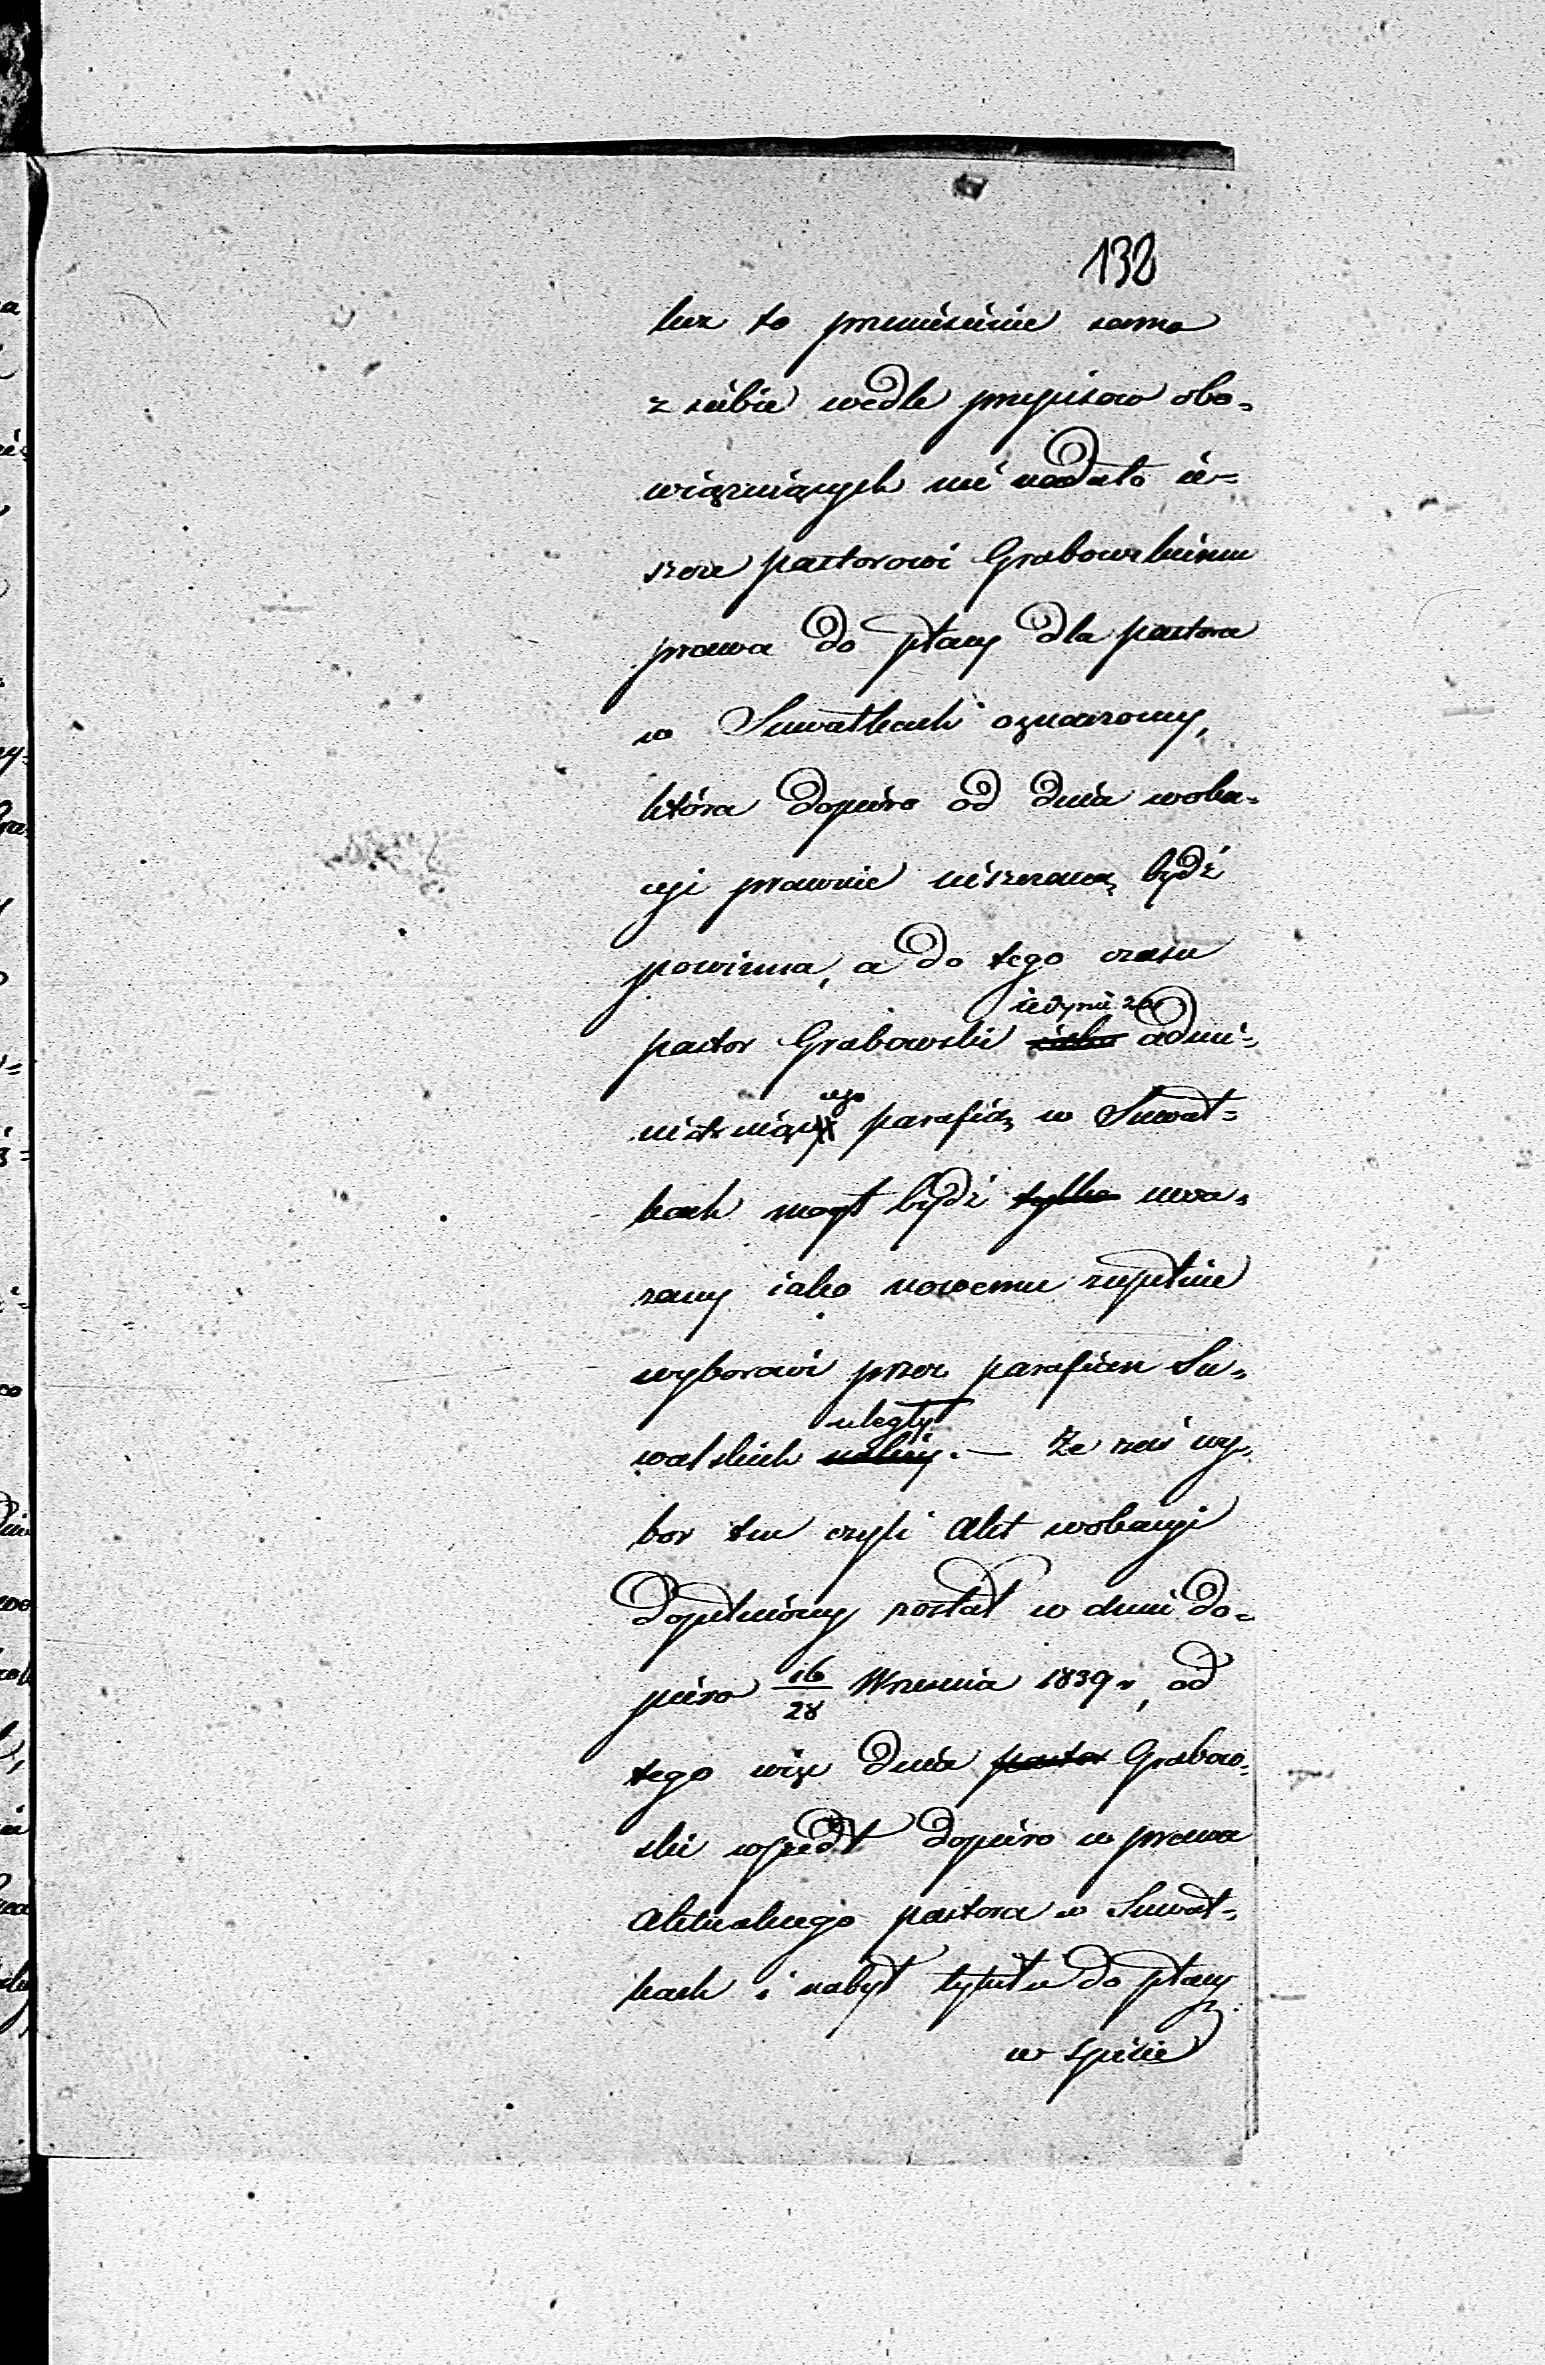 132
lecz to przeniesienie samo
z siebie wedle przepisow obo=
wiązuiących nie nadało ie=
szcze pastorowi Grabowskiemu
prawa do płacy dla pastora
w Suwałkach oznaczoney,
która dopiéro od dnia woka=
cyi prawnie uiszczaną bydź
powinna, a do tego czasu
iedynie za
pastor Grabowski iako admi=
ego
nistruiący parafią w Suwał=
kach mógł bydź tylko uwa=
żany iako nowemu zupełnie
wyborowi przez parafian Su=
uległy
walskich należy. — Że zaś wy=
bor ten czyli Akt wokacyi
dopełniony został w dniu do=
piéro 16/28 Września 1839 r, od
tego więc dnia pastor Grabow=
ski wszedł dopiéro w prawa
Aktualnego pastora w Suwał=
kach i nabył tytułu do płacy
w spisie